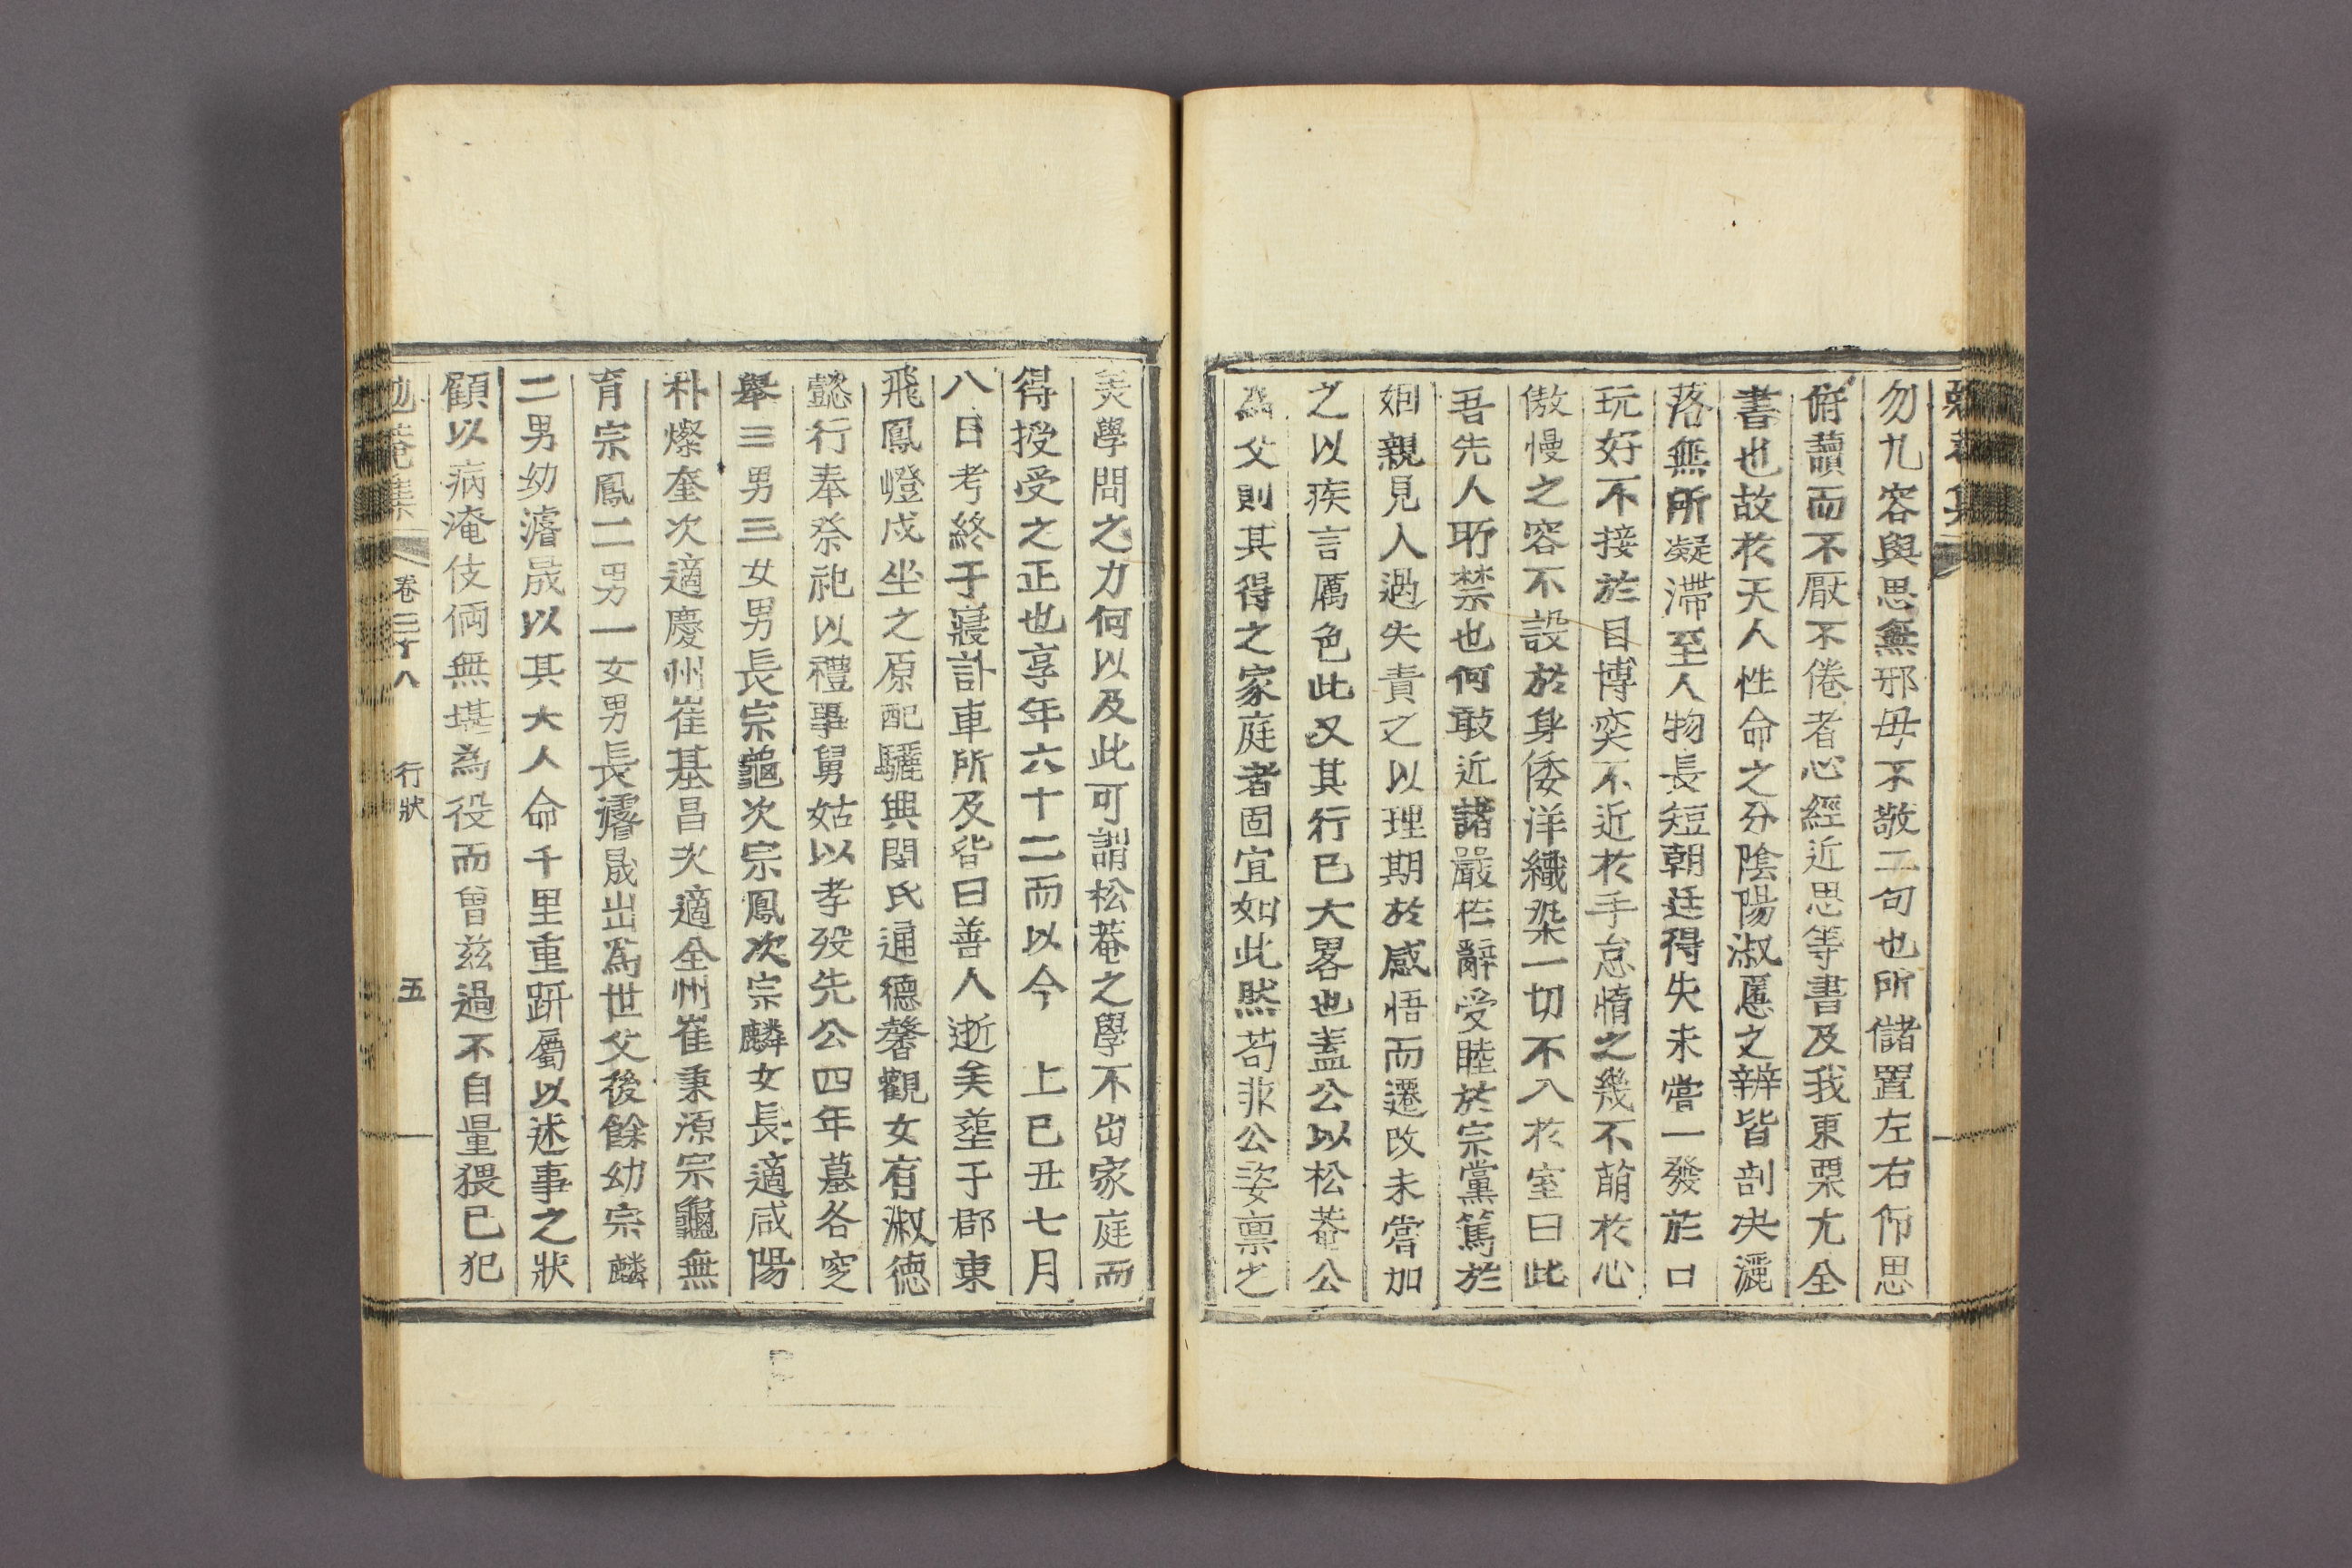 勿九容與思無邪毋不敬二句也所儲置左右仰思
俯讀而不厭不倦者心經近思等書及我東栗尤全
書也故於天人性命之分陰陽淑慝之辨皆剖决灑
落無所凝滯至人物長短朝廷得失未嘗一發於口
玩好不接於目博奕不近於手怠惰之幾不萌於心
傲慢之容不設於身倭洋織染一切不入於室曰此
吾先人所禁也何敢近諸嚴於辭受睦於宗黨篤於
姻親見人過失責之以理期於感悟而遷改未嘗加
之以疾言厲色此又其行已大畧也盖公以松菴公
爲父則其得之家庭者固宜如此然苟非公姿禀之
美學問之力何以及此可謂松菴之學不出家庭而
得授受之正也享年六十二而以今 上已丑七月
八日考終于寢訃車所及皆曰善人逝矣葬于郡東
飛鳳嶝戌坐之原配驪興閔氏通德馨觀女有淑德
懿行奉祭祀以禮事舅姑以孝歿先公四年墓各窆
舉三男三女男長宗龜次宗鳳次宗麟女長適咸陽
朴燦奎次適慶州崔基昌次適全州崔秉源宗龜無
育宗鳳二男一女男長濬晟出爲世父後餘幼宗麟
二男幼濬晟以其大人命千里重趼屬以述事之狀
顧以病淹伎倆無堪為役而曾玆過不自量猥已犯
勉菴集 卷三十八 行狀 五